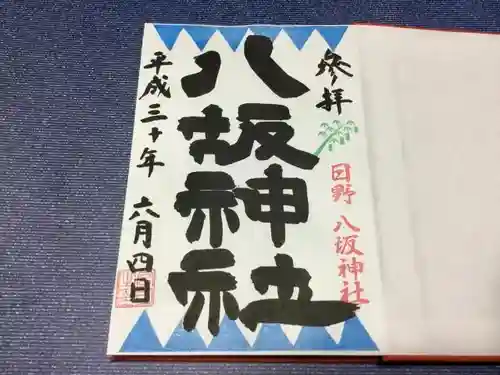 參拝
日野 八坂神社
八坂神社
平成三十年 六月四日